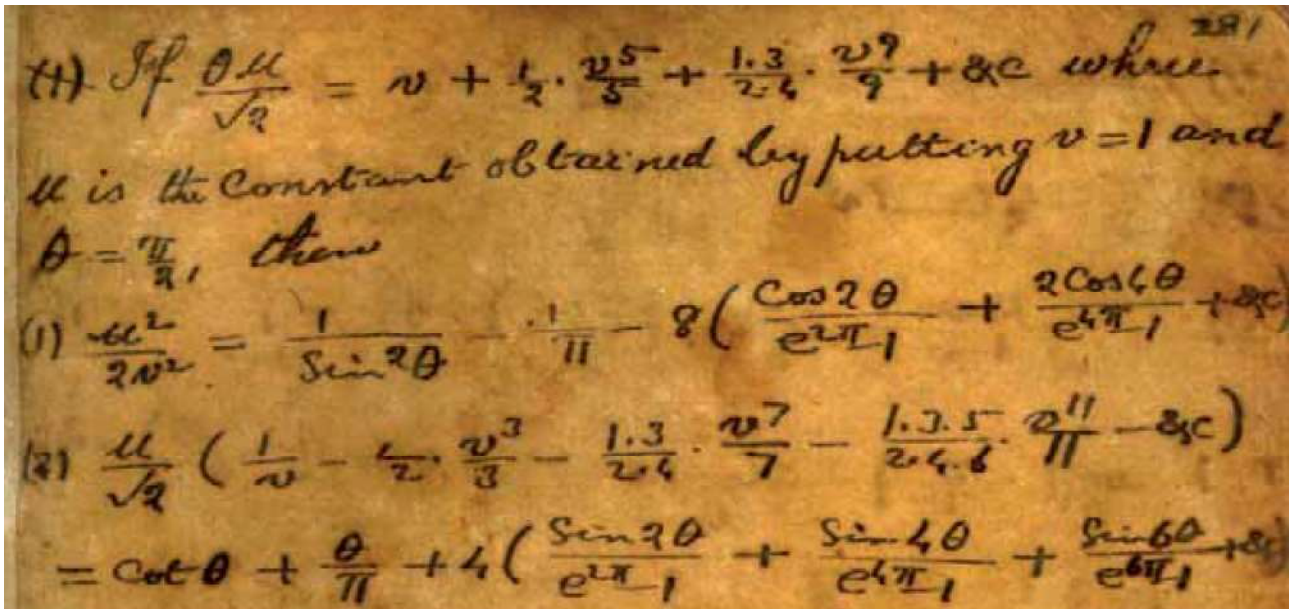 281
(1) If θμ/√2 = v + 1/2 · v⁵/5 + 1·3/2·4 · v⁹/9 + &c where
μ is the constant obtained by putting v = 1 and
θ = π/2, then
(1) μ²/2v² = 1/Sin²θ − 1/π − 8(Cos2θ/e^{2π}−1 + 2Cos4θ/e^{4π}−1 + &c)
(2) μ/√2 (1/v − 1/2 · v³/3 − 1·3/2·4 · v⁷/7 − 1·3·5/2·4·6 · v¹¹/11 − &c)
= Cot θ + θ/π + 4(Sin2θ/e^{2π}−1 + Sin4θ/e^{4π}−1 + Sin6θ/e^{6π}−1 + &c)